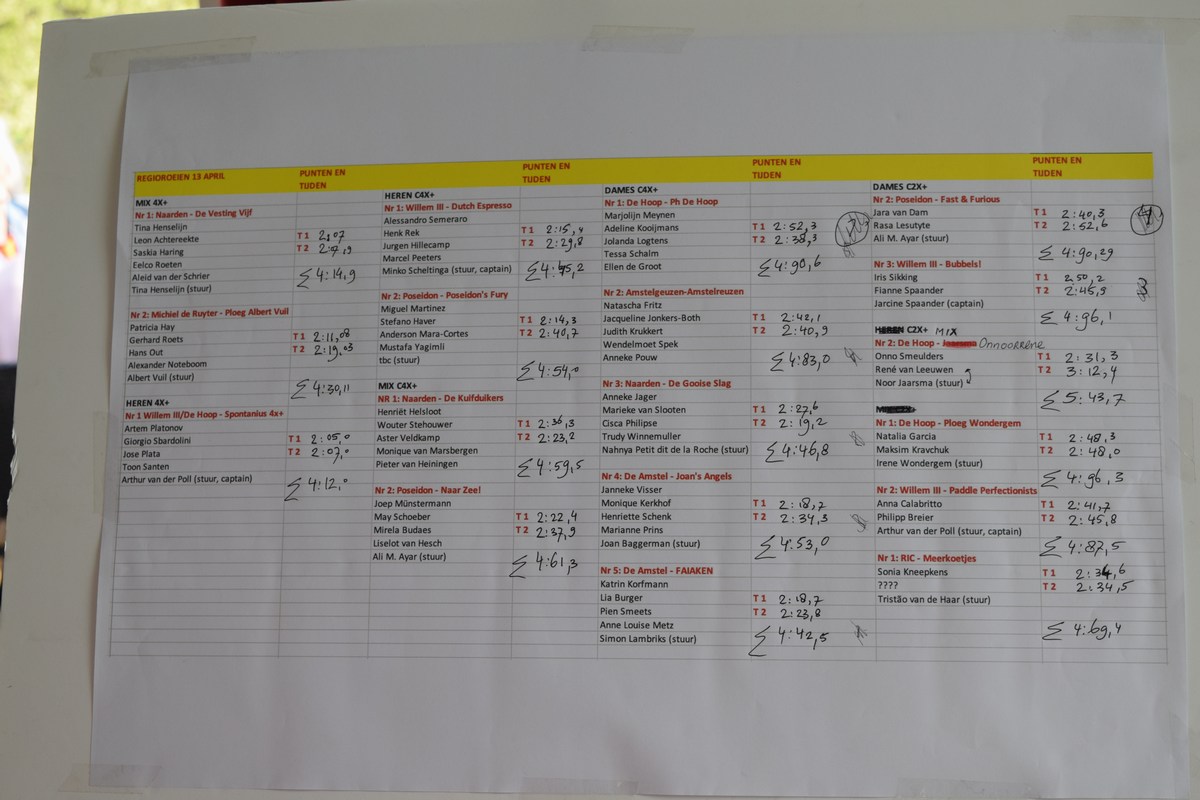 REGIOROEIEN 13 APRIL
PUNTEN EN TIJDEN
MIX 4X+
Nr 1: Naarden - De Vesting Vijf
Tina Henselijn
Leon Achtereekte T1 2,07
Saskia Haring T2
Eelco Roeten
Aleid van der Schrier Σ 4:14,9
Tina Henselijn (stuur)
Nr 2: Michiel de Ruyter - Ploeg Albert Vuil
Patricia Hay
Gerhard Roets T1 2:11,08
Hans Out T2 2:19,03
Alexander Noteboom
Albert Vuil (stuur)
Σ 4:30,11
HEREN 4X+
Nr 1 Willem III/De Hoop - Spontanius 4x+
Artem Platonov
Giorgio Sbardolini T1 2:05,0
Jose Plata T2 2:07,0
Toon Santen
Arthur van der Poll (stuur, captain) Σ 4:12,0
PUNTEN EN TIJDEN
HEREN C4X+
Nr 1: Willem III - Dutch Espresso
Alessandro Semeraro
Henk Rek T1 2:15,4
Jurgen Hillecamp T2 2:29,8
Marcel Peeters
Minko Scheltinga (stuur, captain) Σ
Nr 2: Poseidon - Poseidon's Fury
Miguel Martinez
Stefano Haver T1 2:14,3
Anderson Mara-Cortes T2 2:40,7
Mustafa Yagimli
tbc (stuur) Σ 4:54,0
MIX C4X+
NR 1: Naarden - De Kuifduikers
Henriët Helsloot
Wouter Stehouwer T1 2:36,3
Aster Veldkamp T2 2:23,2
Monique van Marsbergen
Pieter van Heiningen Σ 4:59,5
Nr 2: Poseidon - Naar Zee!
Joep Münstermann
May Schoeber T1 2:22,4
Mirela Budaes T2 2:37,9
Liselot van Hesch
Ali M. Ayar (stuur) Σ 4:61,3
PUNTEN EN TIJDEN
DAMES C4X+
Nr 1: De Hoop - Ph De Hoop
Marjolijn Meynen
Adeline Kooijmans T1 2:52,3
Jolanda Logtens T2 2:38,3
Tessa Schalm
Ellen de Groot Σ 4:90,6
Nr 2: Amstelgeuzen-Amstelreuzen
Natascha Fritz
Jacqueline Jonkers-Both T1 2:42,1
Judith Krukkert T2 2:40,9
Wendelmoet Spek
Anneke Pouw Σ 4:83,0
Nr 3: Naarden - De Gooise Slag
Anneke Jager
Marieke van Slooten T1 2:27,6
Cisca Philipse T2 2:19,2
Trudy Winnemuller
Nahnya Petit dit de la Roche (stuur) Σ 4:46,8
Nr 4: De Amstel - Joan's Angels
Janneke Visser
Monique Kerkhof T1 2:18,7
Henriette Schenk T2 2:34,3
Marianne Prins
Joan Baggerman (stuur) Σ 4:53,0
Nr 5: De Amstel - FAIAKEN
Katrin Korfmann
Lia Burger T1 2:18,7
Pien Smeets T2 2:23,8
Anne Louise Metz
Simon Lambriks (stuur) Σ 4:42,5
PUNTEN EN TIJDEN
DAMES C2X+
Nr 2: Poseidon - Fast & Furious
Jara van Dam T1 2:40,3
Rasa Lesutyte T2 2:52,6
Ali M. Ayar (stuur)
Σ 4:90,29
Nr 3: Willem III - Bubbels!
Iris Sikking T1 2.50,2
Fianne Spaander T2 2:45,9
Jarcine Spaander (captain)
Σ 4:96,1
C2X+ MIX
Nr 2: De Hoop - Onnoorrene
Onno Smeulders T1 2:31,3
René van Leeuwen T2 3:12,4
Noor Jaarsma (stuur)
Σ 5:43,7
Nr 1: De Hoop - Ploeg Wondergem
Natalia Garcia T1 2:48,3
Maksim Kravchuk T2 2:48,0
Irene Wondergem (stuur)
Σ 4:96,3
Nr 2: Willem III - Paddle Perfectionists
Anna Calabritto T1 2:41,7
Philipp Breier T2 2:45,8
Arthur van der Poll (stuur, captain)
Σ 4:87,5
Nr 1: RIC - Meerkoetjes
Sonia Kneepkens T1 2:34,6
???? T2 2:34,5
Tristão van de Haar (stuur)
Σ 4:69,4